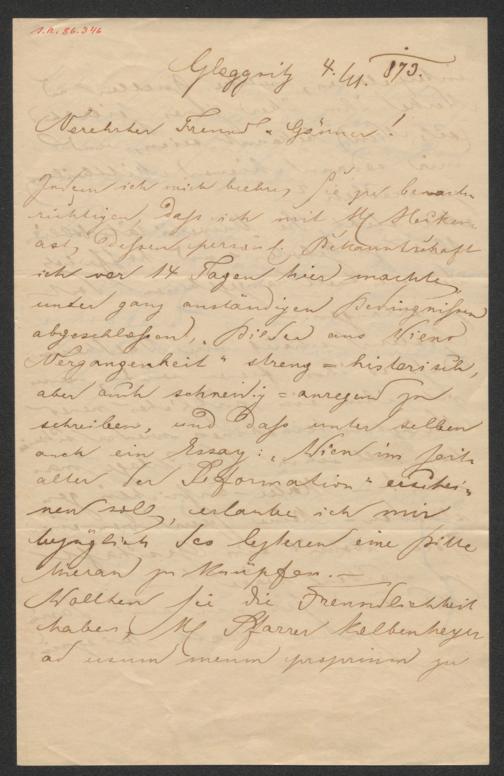 I.N. 86.346
Gloggnitz 4./11. 873.
Verehrter Freund u. Gönner!
Indem ich mich beehre, Sie zu benach-
richtigen, daß ich mit H Hecken-
ast, dessen persönl. Bekanntschaft
ich vor 14 Tagen hier machte,
unter ganz anständigen Bedingnissen
abgeschloßen, „Bilder aus Wiens
Vergangenheit" streng = historisch,
aber auch schneidig = anregend zu
schreiben, und daß unter selben
auch ein Essay: „Wien im Zeit-
alter der Reformation" erschei-
nen soll, erlaube ich mir
bezüglich des letzteren eine Bitte
hieran zu knüpfen. —
Wollten Sie die Freundlichkeit
haben, H Pfarrer Kolbenheyer
ad usum meum proprium zu